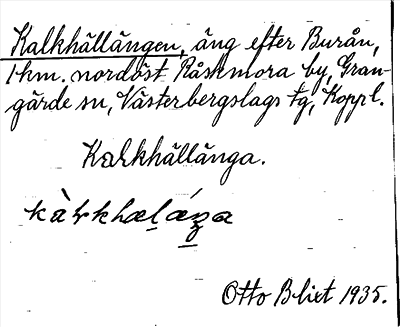 Kalkhällängen, äng efter Burån,
1 km. nordöst Råskmora by, Gran-
gärde sn, Västerbergslags tg, Koppl.
Kalkhällänga.
Otto Blixt 1935.